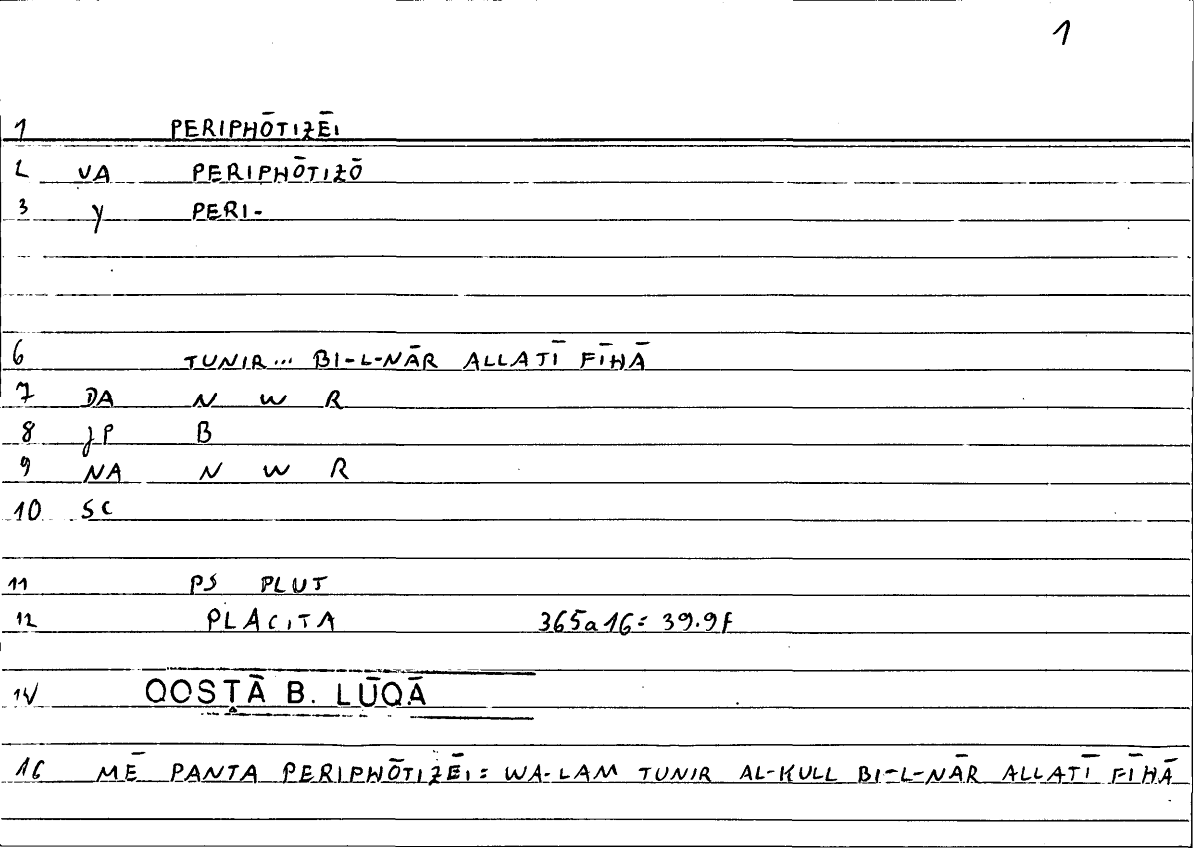 1
1 PERIPHŌTIZĒI
2 VA PERIPHŌTIZŌ
3 Y PERI-
6 TUNIR... BI-L-NĀR ALLATĪ FĪHĀ
7 DA N W R
8 JP B
9 NA N W R
10 SC
11 PS PLUT
12 PLACITA 365a16= 39.9f
14 QOSṬĀ B. LŪQĀ
16 MĒ PANTA PERIPHŌTIZĒI: WA-LAM TUNIR AL-KULL BI-L-NĀR ALLATĪ FĪHĀ